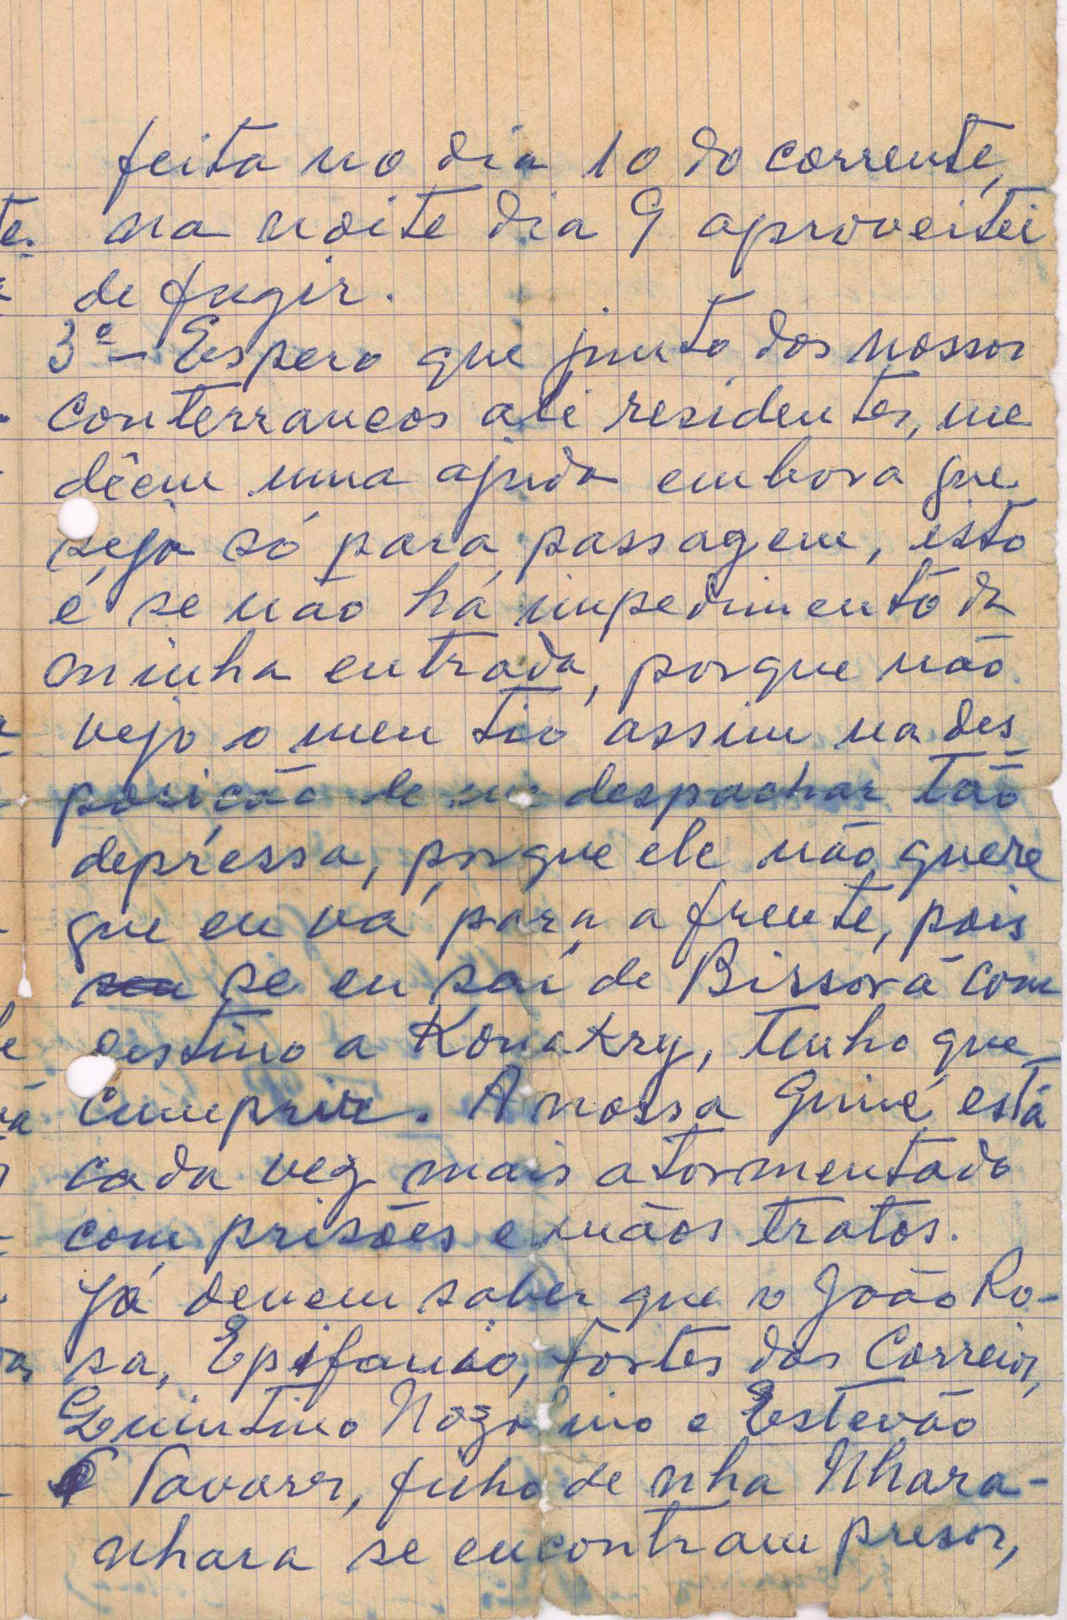 feita no dia 10 do corrente,
na noite dia 9 aproveitei
de fugir.
3º - Espero que junto dos nossos
conterraneos ali residentes, me
dêem uma ajuda embora que
seja só para passagem, isto
é se não há impedimento da
minha entrada, porque não
vejo o meu tio assim na des
posicão de me despachar tão
depressa, porque ele não quere
que eu vá para a frente, pois
se eu saí de Bissorã com
destino a Konakry, tenho que
cumprir. A nossa Guiné está
cada vez mais atormentada
com prisões e mãos tratos.
Já devem saber que o João Ro-
sa, Epifanio, Fortes dos Correios,
Quintino Nozolino e Estevão
Tavares, filho de nha Nhara-
nhara se encontram presos,